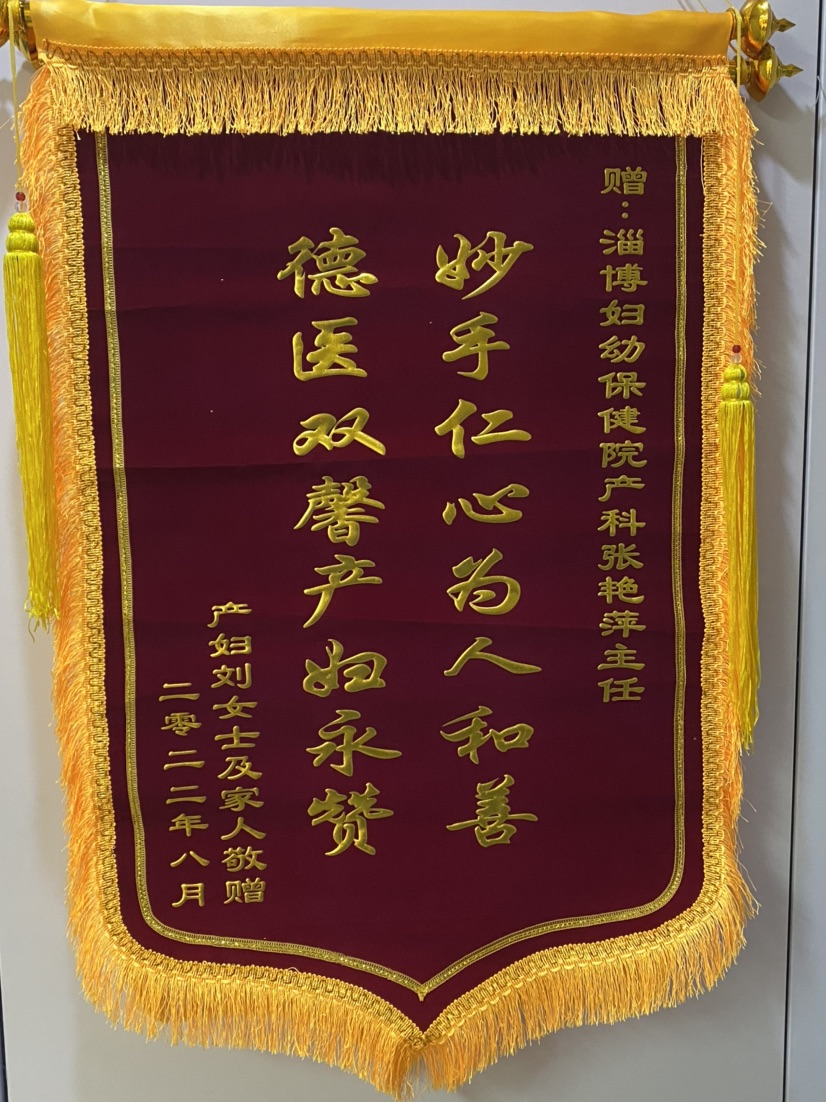 赠：淄博妇幼保健院产科张艳萍主任
妙手仁心为人和善
德医双馨产妇永赞
产妇刘女士及家人敬赠
二零二二年八月